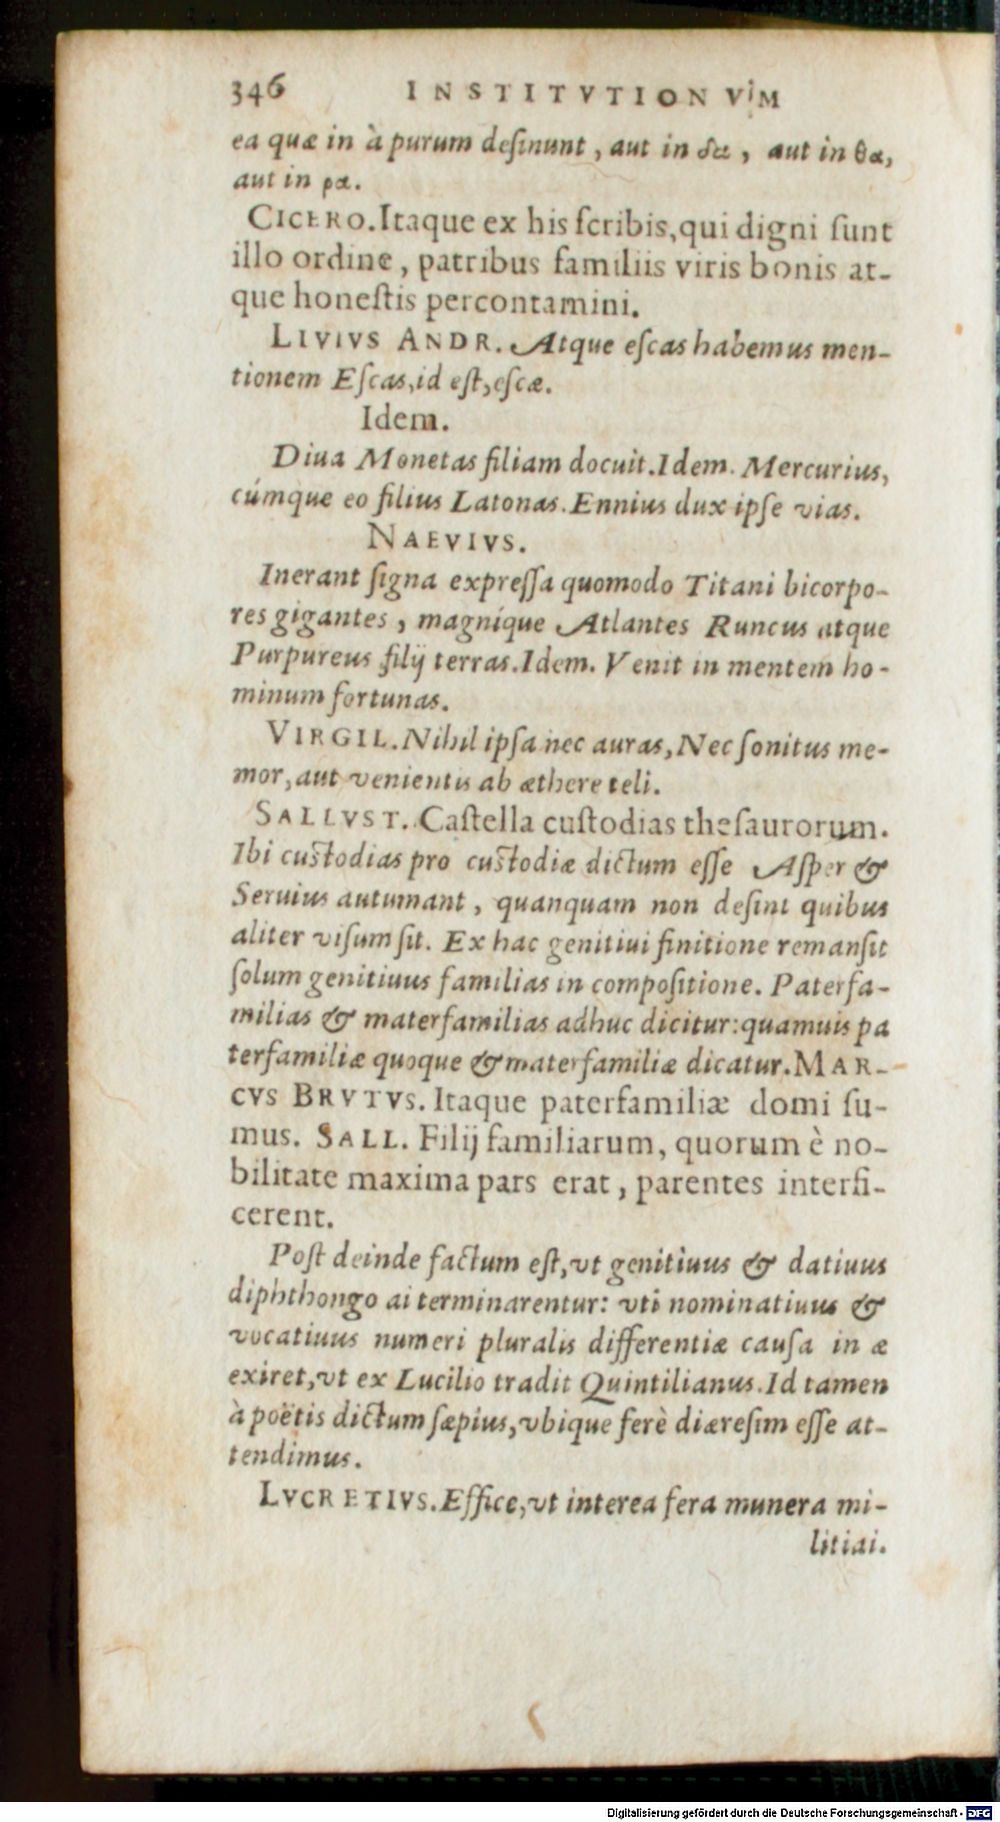 346 INSTITVTIONVM
ea quæ in à purum desinunt, aut in δα, aut in θα,
aut in ρα.
CICERO. Itaque ex his scribis, qui digni sunt
illo ordine, patribus familiis viris bonis at-
que honestis percontamini.
LIVIVS ANDR. Atque escas habemus men-
tionem Escas, id est, escæ.
Idem.
Diua Monetas filiam docuit. Idem. Mercurius,
cúmque eo filius Latonas. Ennius dux ipse vias.
NAEVIVS.
Inerant signa expressa quomodo Titani bicorpo-
res gigantes, magníque Atlantes Runcus atque
Purpureus filij terras. Idem. Venit in mentem ho-
minum fortunas.
VIRGIL. Nihil ipsa nec auras, Nec sonitus me-
mor, aut venientis ab æthere teli.
SALLVST. Castella custodias thesaurorum.
Ibi custodias pro custodiæ dictum esse Asper &
Seruius autumant, quanquam non desint quibus
aliter visum sit. Ex hac genitiui finitione remansit
solum genitiuus familias in compositione. Paterfa-
milias & materfamilias adhuc dicitur: quamuis pa
terfamiliæ quoque & materfamiliæ dicatur. MAR-
CVS BRVTVS. Itaque paterfamiliæ domi su-
mus. SALL. Filij familiarum, quorum è no-
bilitate maxima pars erat, parentes interfi-
cerent.
Post deinde factum est, vt genitiuus & datiuus
diphthongo ai terminarentur: vti nominatiuus &
vocatiuus numeri pluralis differentiæ causa in æ
exiret, vt ex Lucilio tradit Quintilianus. Id tamen
à poëtis dictum sæpius, vbique ferè diæresim esse at-
tendimus.
LVCRETIVS. Effice, vt interea fera munera mi-
litiai.
Digitalisierung gefördert durch die Deutsche Forschungsgemeinschaft - DFG